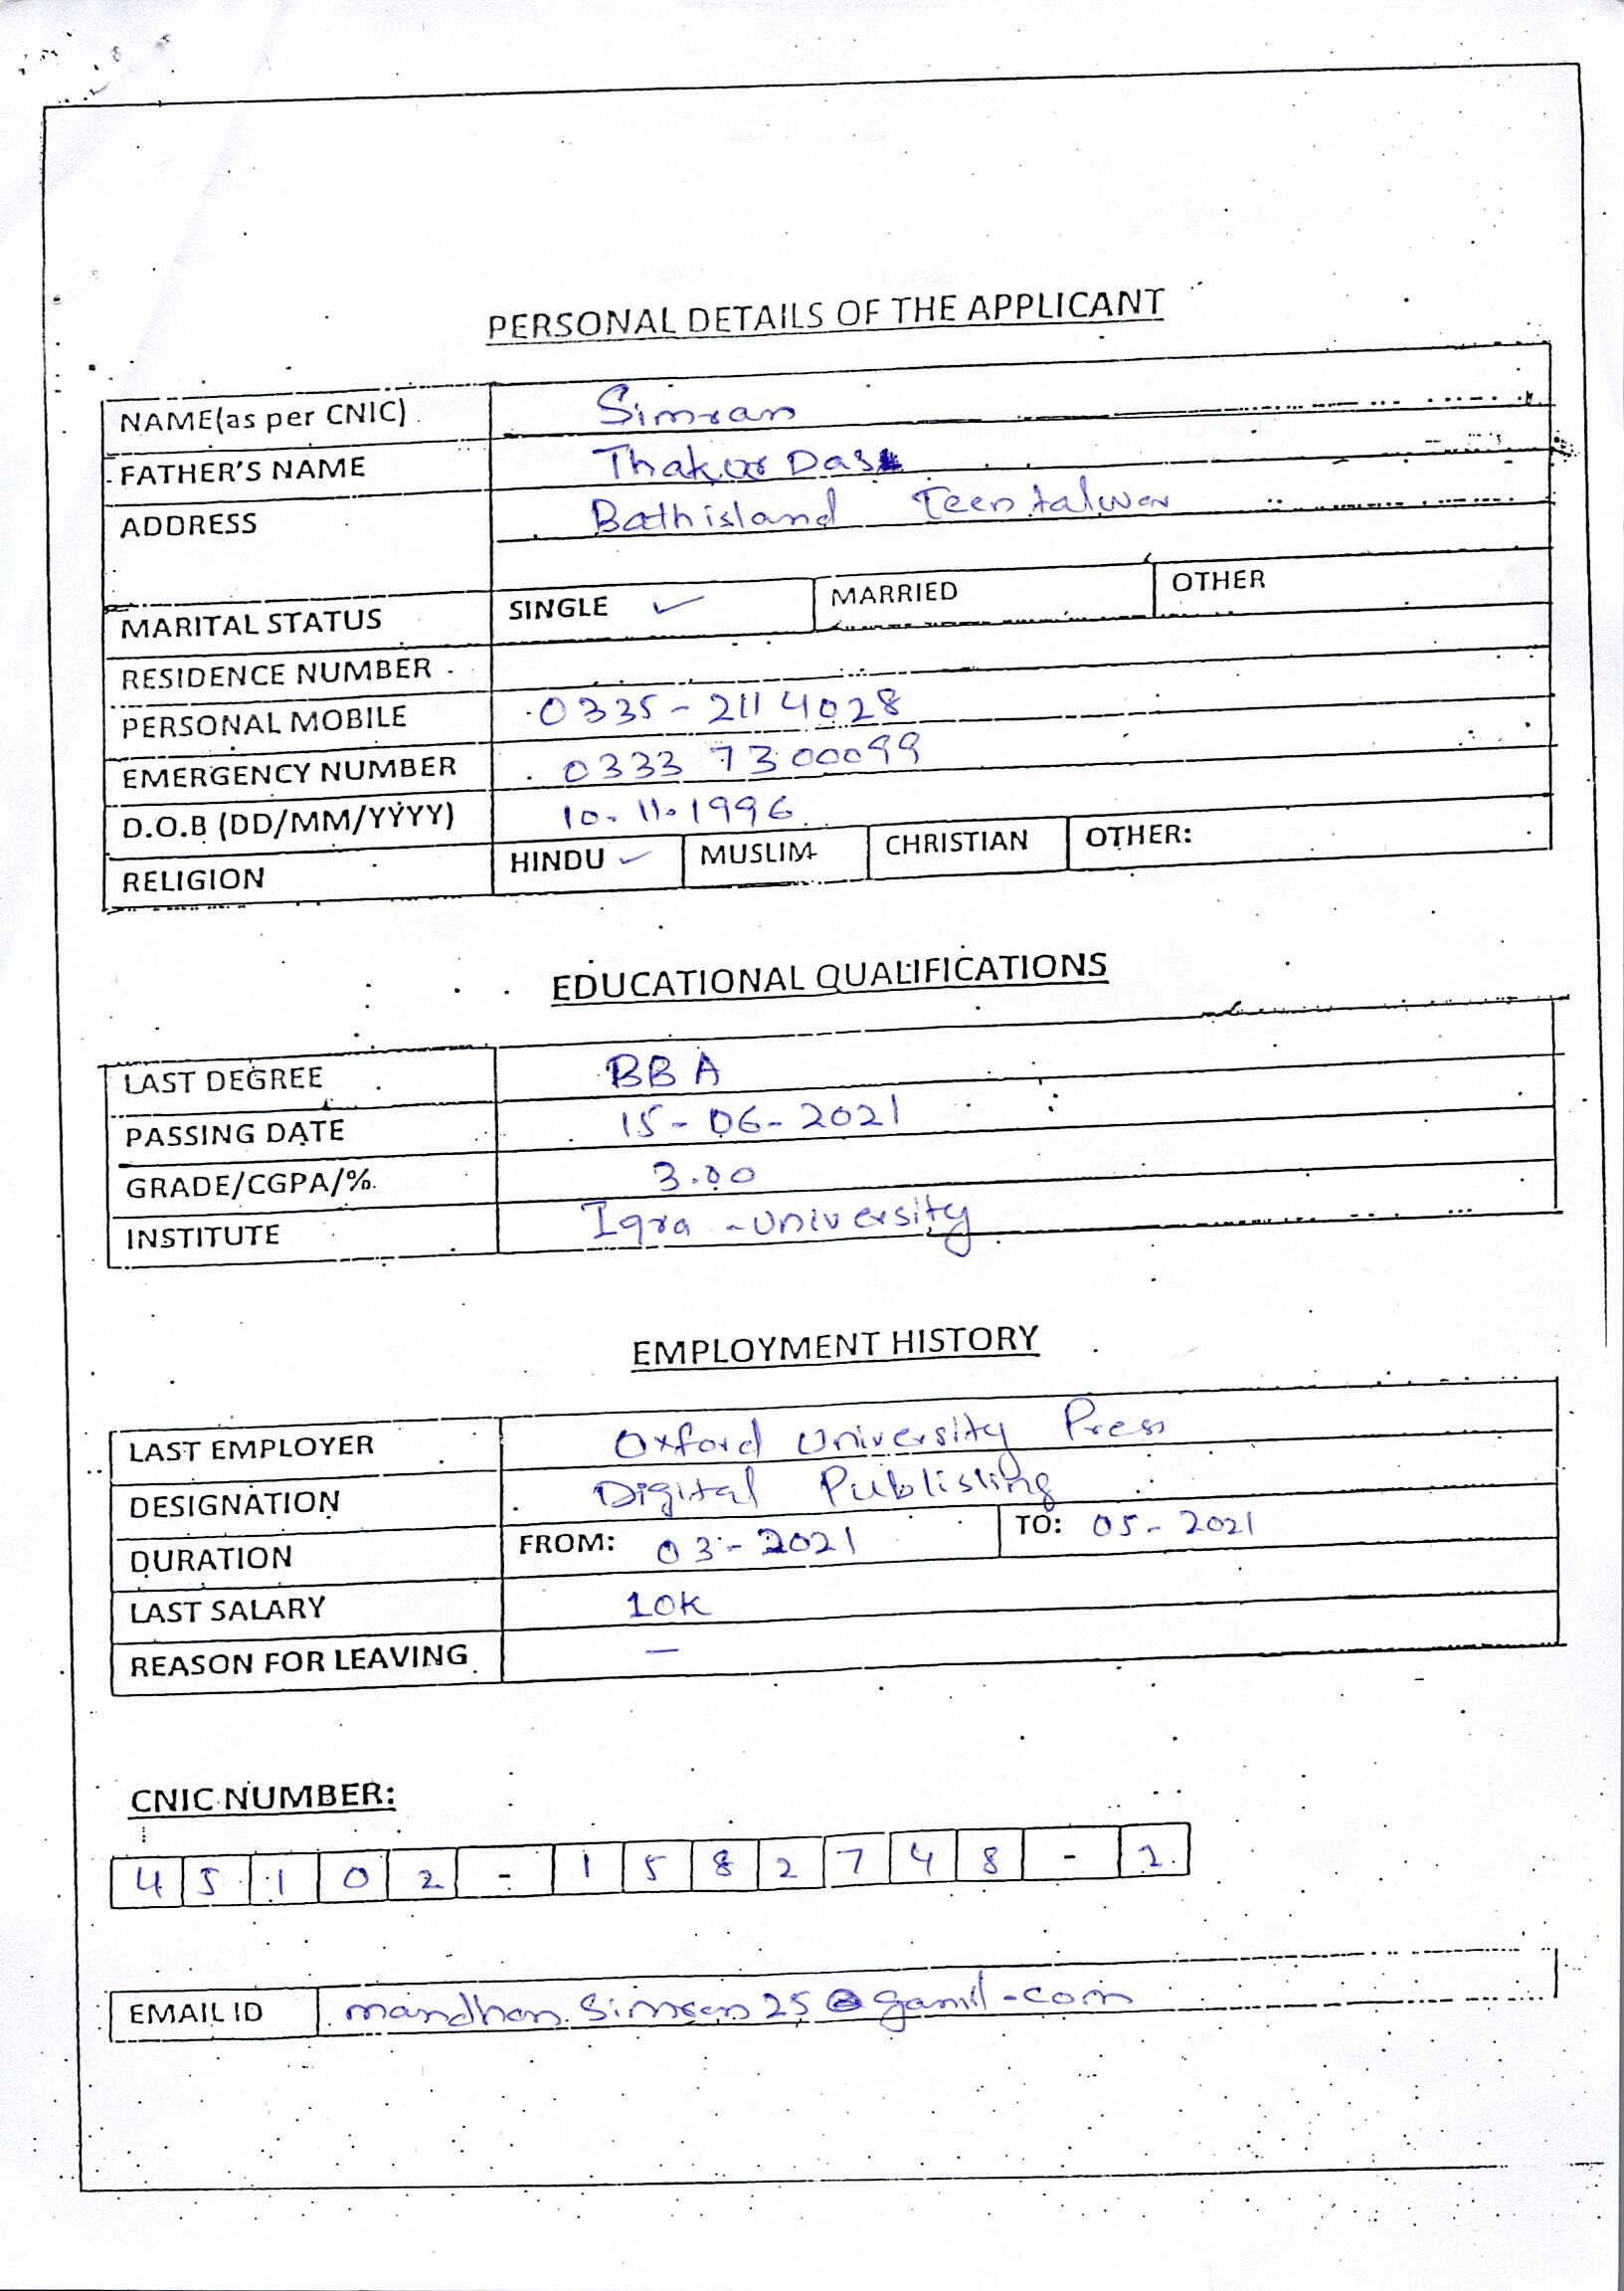 PERSONAL DETAILS OF THE APPLICANT
NAME(as per CNIC) Simran
FATHER'S NAME Thakur Das
ADDRESS Bathisland Teentalwar
MARITAL STATUS SINGLE ✓ MARRIED OTHER
RESIDENCE NUMBER
PERSONAL MOBILE 0335-2114028
EMERGENCY NUMBER 0333 7300099
D.O.B (DD/MM/YYYY) 10.11.1996
RELIGION HINDU ✓ MUSLIM CHRISTIAN OTHER:
EDUCATIONAL QUALIFICATIONS
LAST DEGREE BBA
PASSING DATE 15-06-2021
GRADE/CGPA/% 3.00
INSTITUTE Iqra -University
EMPLOYMENT HISTORY
LAST EMPLOYER Oxford University Press
DESIGNATION Digital Publisling
DURATION FROM: 03-2021 TO: 05-2021
LAST SALARY 10K
REASON FOR LEAVING —
CNIC NUMBER:
45102-1582748-2
EMAIL ID mandhan.Simran25@gamil.com